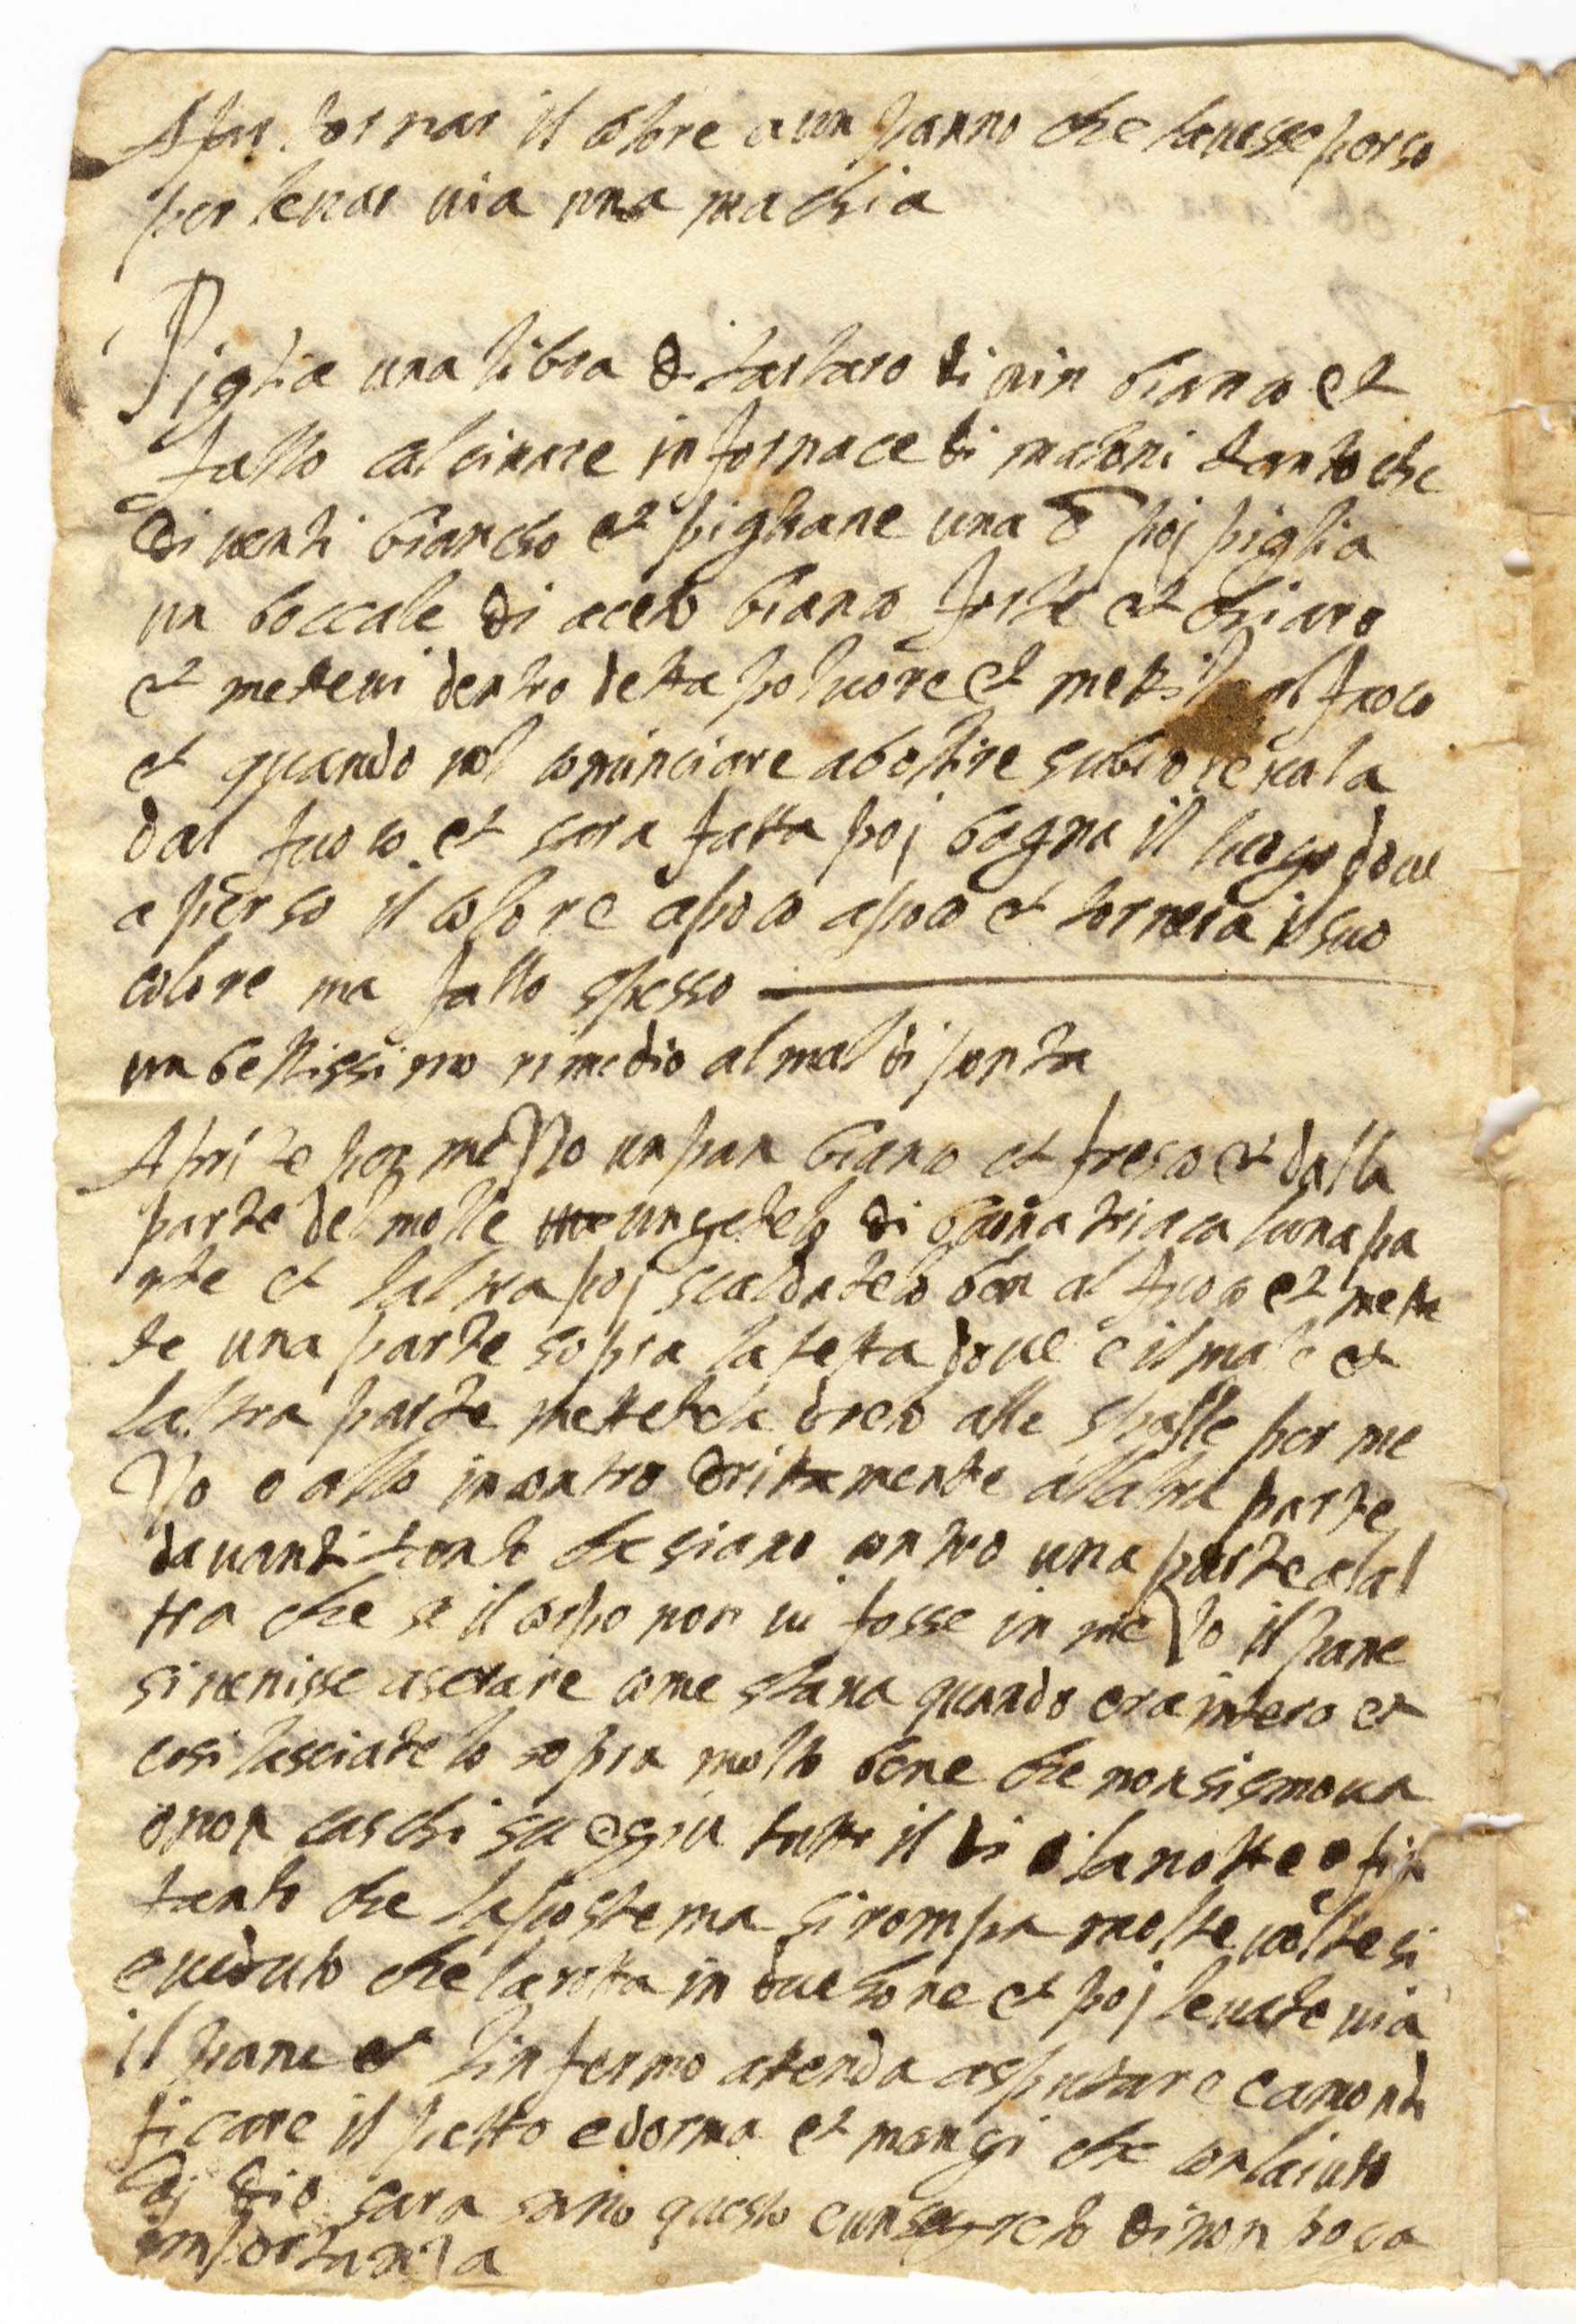 A far tornar il colore a un panno che lavesse perso
per levar via una machia
Piglia una libra di tartaro di vin bianco et
fallo calcinare in fornace di matoni tanto che
diventi biancho et pigliane una poi piglia
un boccale di aceto bianco forte et chiaro
et metteui dentro detta poluore et al fuoco
et quando vol cominciare a bollire subito leuala
dal fuoco et sara fatta poi bagna il luogo doue
a perso il colore a poco a poco et tornera il suo
colore ma fallo spesso
un bellissimo rimedio al mal di ponta
Aprite per mezzo un pan bianco et fresco et dalla
parte del molle ungetelo di buona triaca luna pa
rte et laltra poi scaldatelo ben al fuoco et mette
te una parte sopra la doue e il male et
laltra parte mettetela dreto alle spalle per me
zzo o allo incontro dritamente alaltra parte
dauanti tanto che siano contro una parte alal
tra che se il corpo non ui fosse in mezzo il pane
si uenisse a serare come staua quando era intero et
cosi lasciatelo sopra molto bene che non si smoua
o non caschi su e giu tutto il di e la notte e fin
tanto che la postema si rompa molte uolte si
e ueduto che la rotta in due hore et poi leuate uia
il pane et linfermo attenda a sputare e a mondi
ficare il petto e dorma et mangi che con laiuto
di dio sara sano questo e un segreto di non poca
importanza